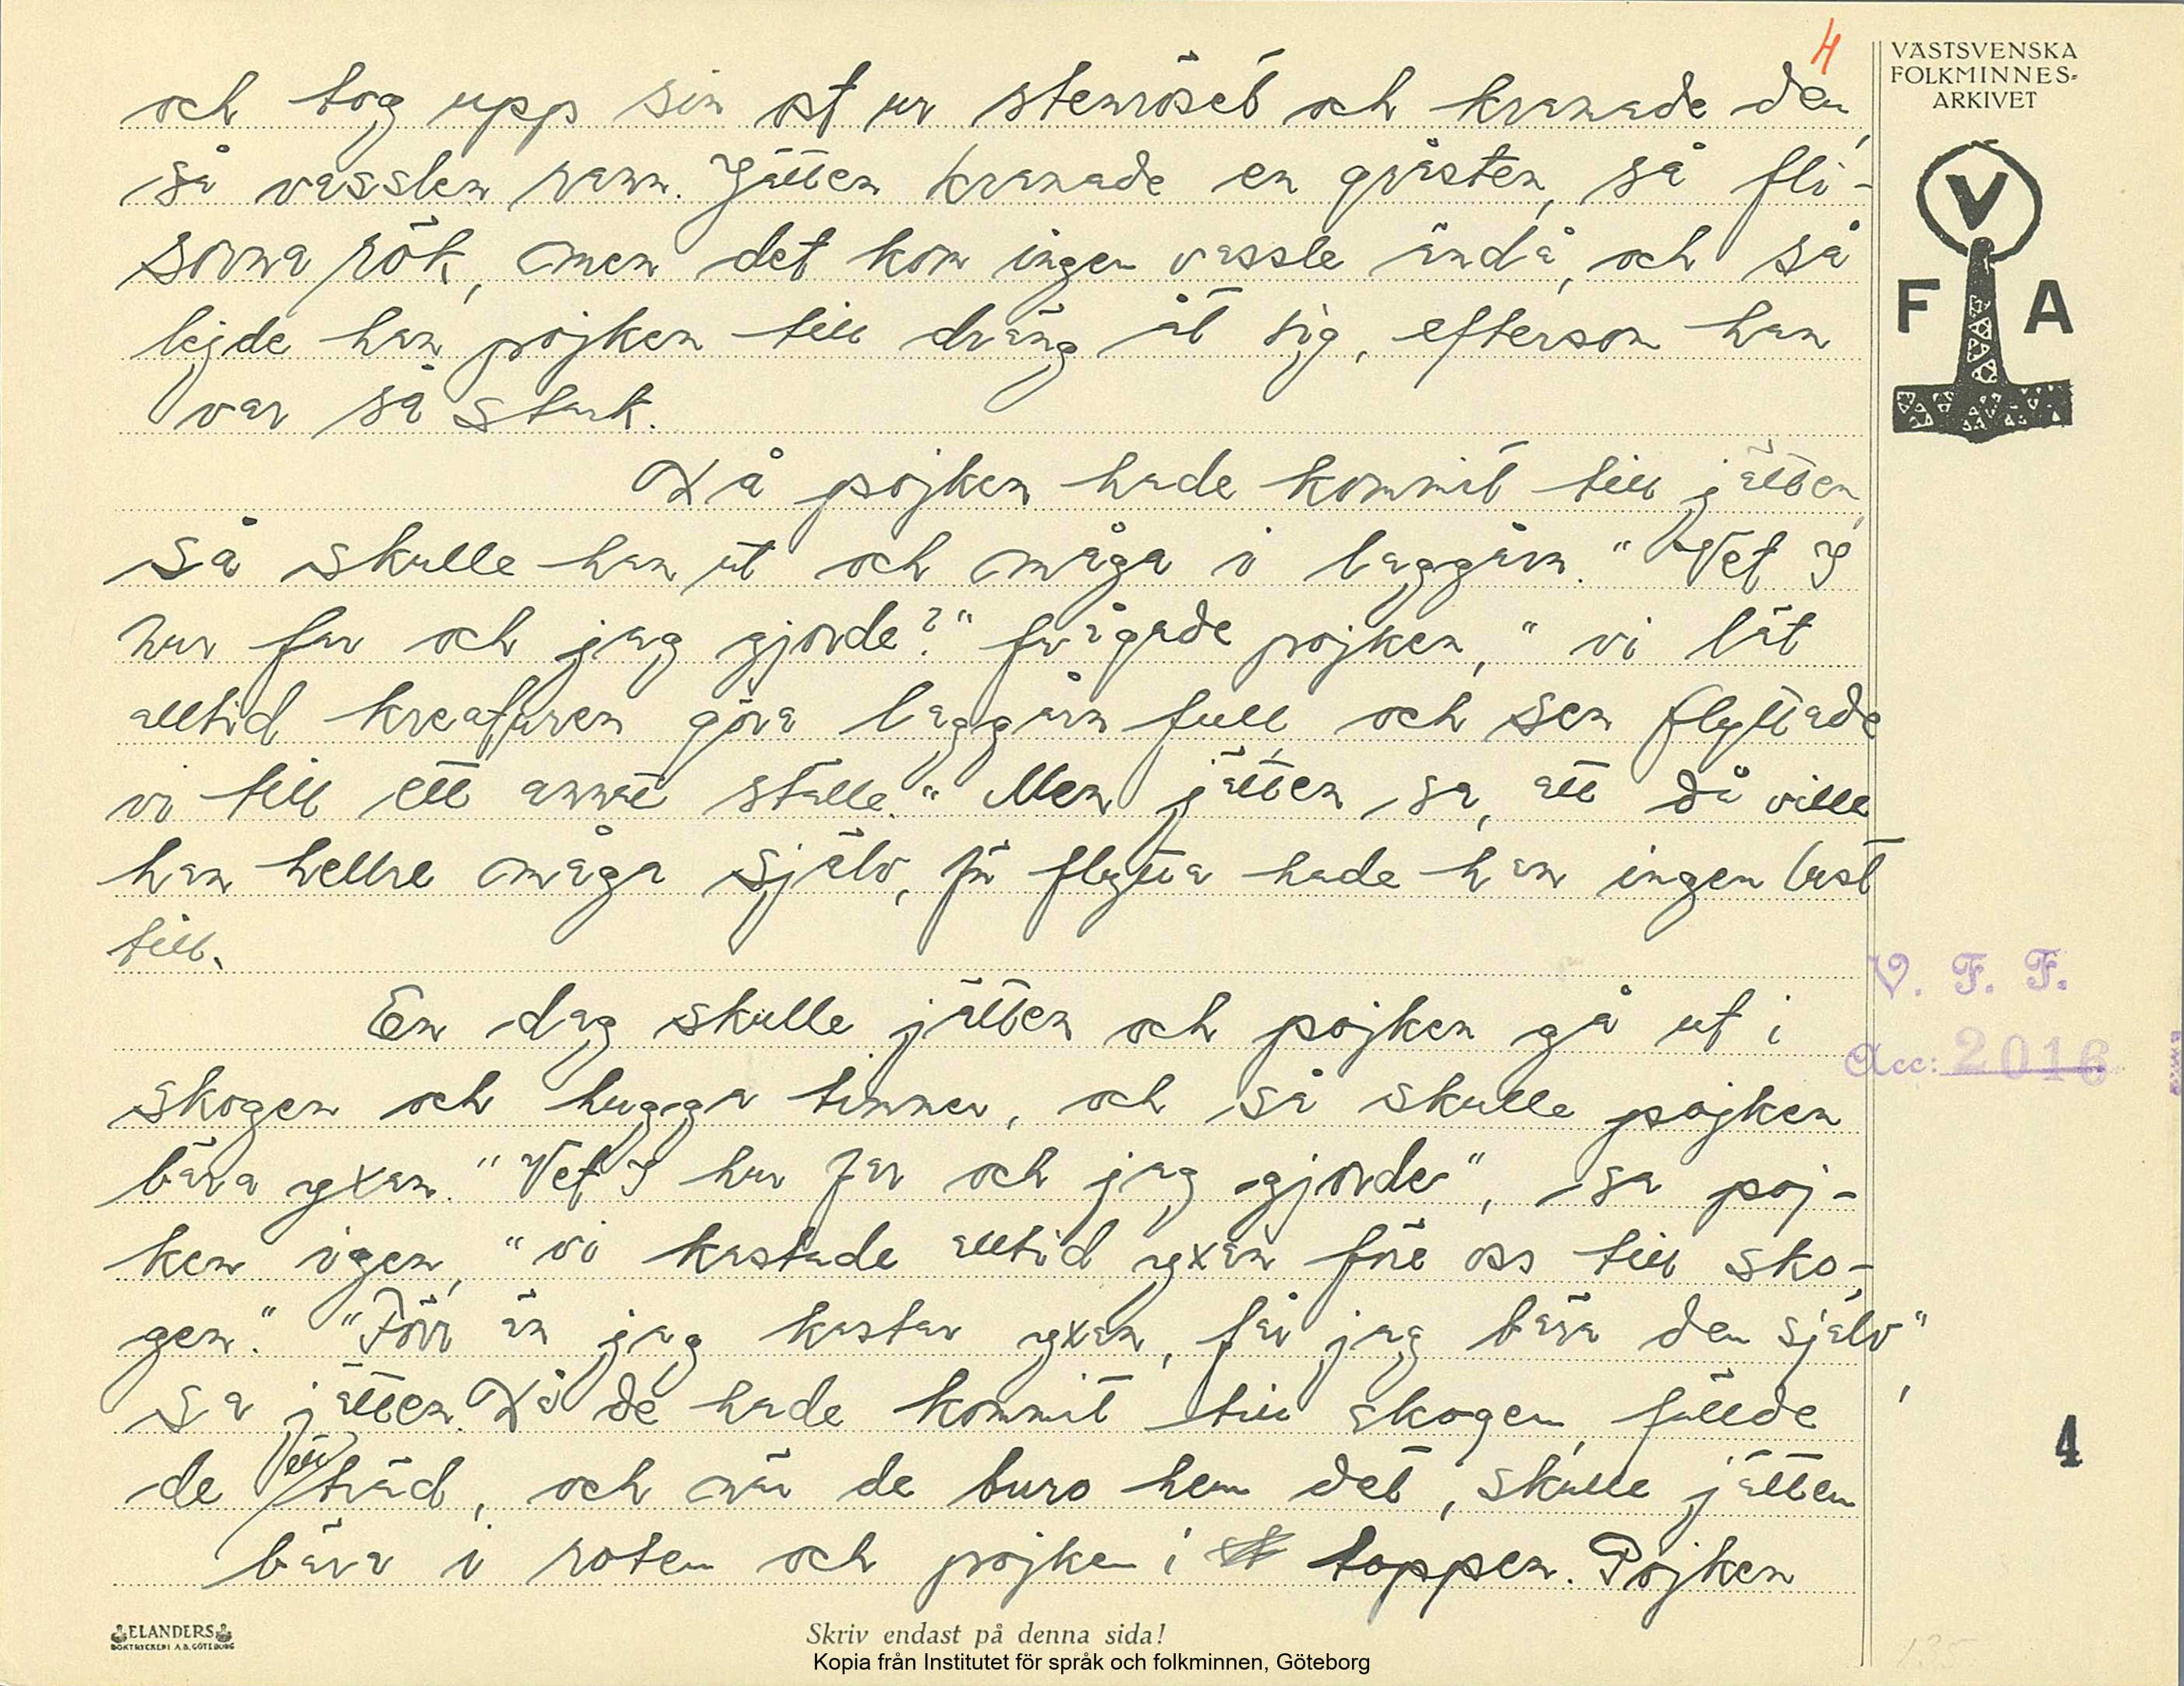 4
VÄSTSVENSKA
FOLKMINNES-
ARKIVET
V
F A
och tog upp sin ost ur stenröset och kramade den,
så vasslen rann. Jätten kramade en gråsten, så fli-
sorna rök, men det kom ingen vassle ändå, och så
lejde han pojken till dräng åt sig, eftersom han
var så stark.
Då pojken hade kommit till jätten,
så skulle han ut och måga i laggårn. "Vet I
hur far och jag gjorde?" frågade pojken, "vi lät
alltid kreaturen göra laggårn full och sen flyttade
vi till ett annat ställe." Men jätten sa, att då ville
han hellre måga själv, för flytta hade han ingen lust
till.
En dag skulle jätten och pojken gå ut i
skogen och hugga timmer, och så skulle pojken
bära yxan. "Vet I hur far och jag gjorde", sa poj-
ken igen, "vi kastade alltid yxan före oss till sko-
gen." "Förr än jag kastar yxan, får jag bära den själv",
sa jätten. Då de hade kommit till skogen, fällde
de ett träd, och när de buro hem det, skulle jätten
bära i roten och pojken i toppen. Pojken
V. F. F.
Acc: 2016
4
ELANDERS
BOKTRYCKERI A.B. GÖTEBORG
Skriv endast på denna sida!
Kopia från Institutet för språk och folkminnen, Göteborg